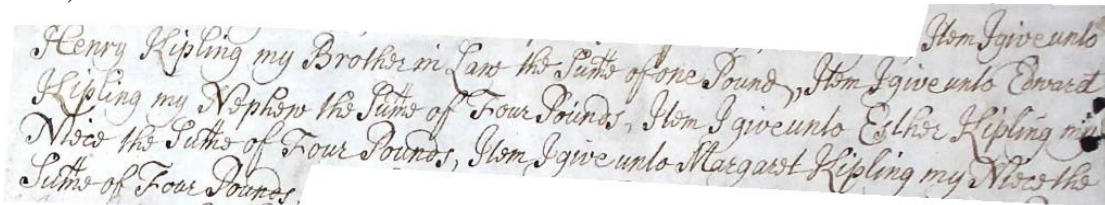 Item I give unto
Henry Kipling my Brother in Law the Sume of one Pound, Item I give unto Edward
Kipling my Nephew the Sume of Four Pounds, Item I give unto Esther Kipling my
Niece the Sume of Four Pounds, Item I give unto Margaret Kipling my Niece the
Sume of Four Pounds.